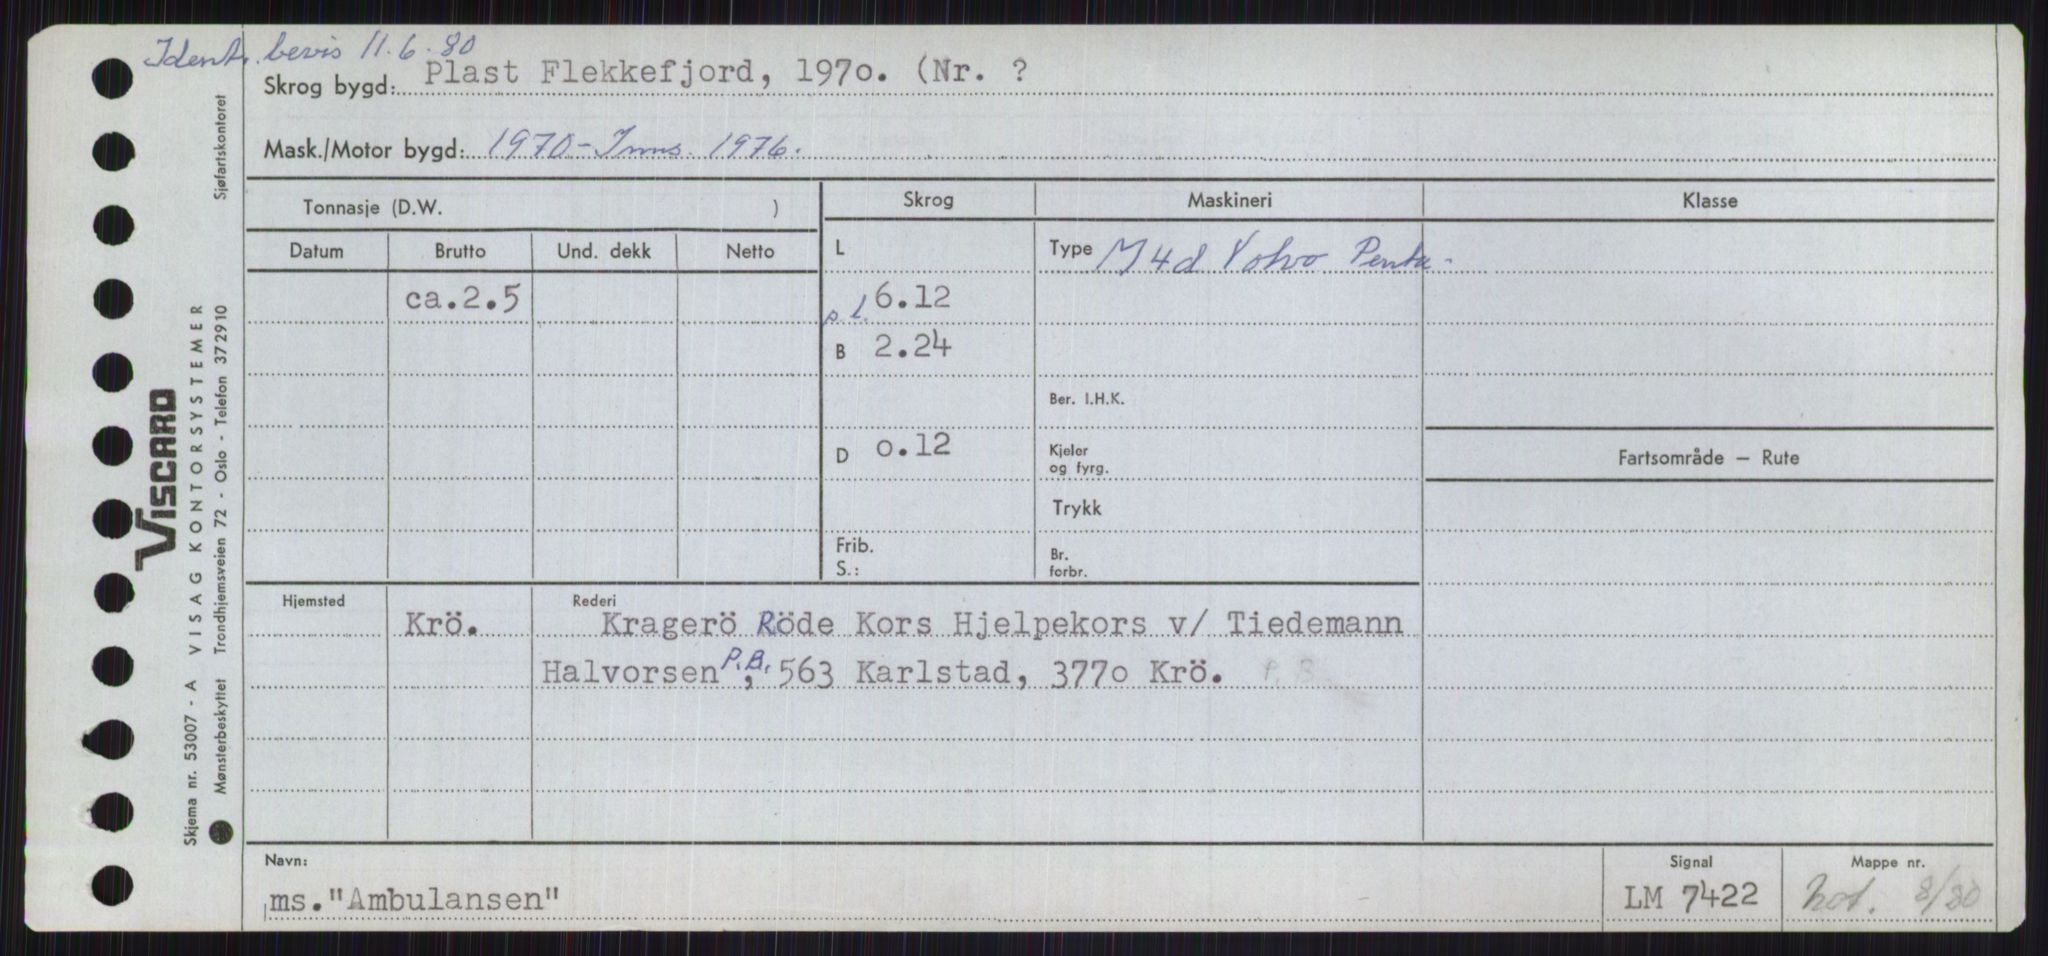 Ident. bevis 11.6.80
Skrog bygd: Plast Flekkefjord, 197o. (Nr. ?
Mask./Motor bygd: 1970 - Inns. 1976.
Tonnasje (D.W. )
Skrog
Maskineri
Klasse
Datum Brutto Und. dekk Netto
L
Type M4d Volvo Penta.
ca.2.5
p.l. 6.12
B 2.24
Ber. I.H.K.
D o.12
Kjeler
og fyrg.
Fartsområde — Rute
Trykk
Frib.
S.:
Br.
forbr.
Hjemsted
Rederi
Krö.
Kragerö Röde Kors Hjelpekors v/ Tiedemann
Halvorsen, P.B. 563 Karlstad, 377o Krö. P.B.
Navn:
ms."Ambulansen"
Signal
LM 7422
Mappe nr.
not. 8/80
Viscard
VISAG KONTORSYSTEMER
Skjema nr. 53007 - A
Mønsterbeskyttet Trondhjemsveien 72 - Oslo - Telefon 372910
Sjøfartskontoret